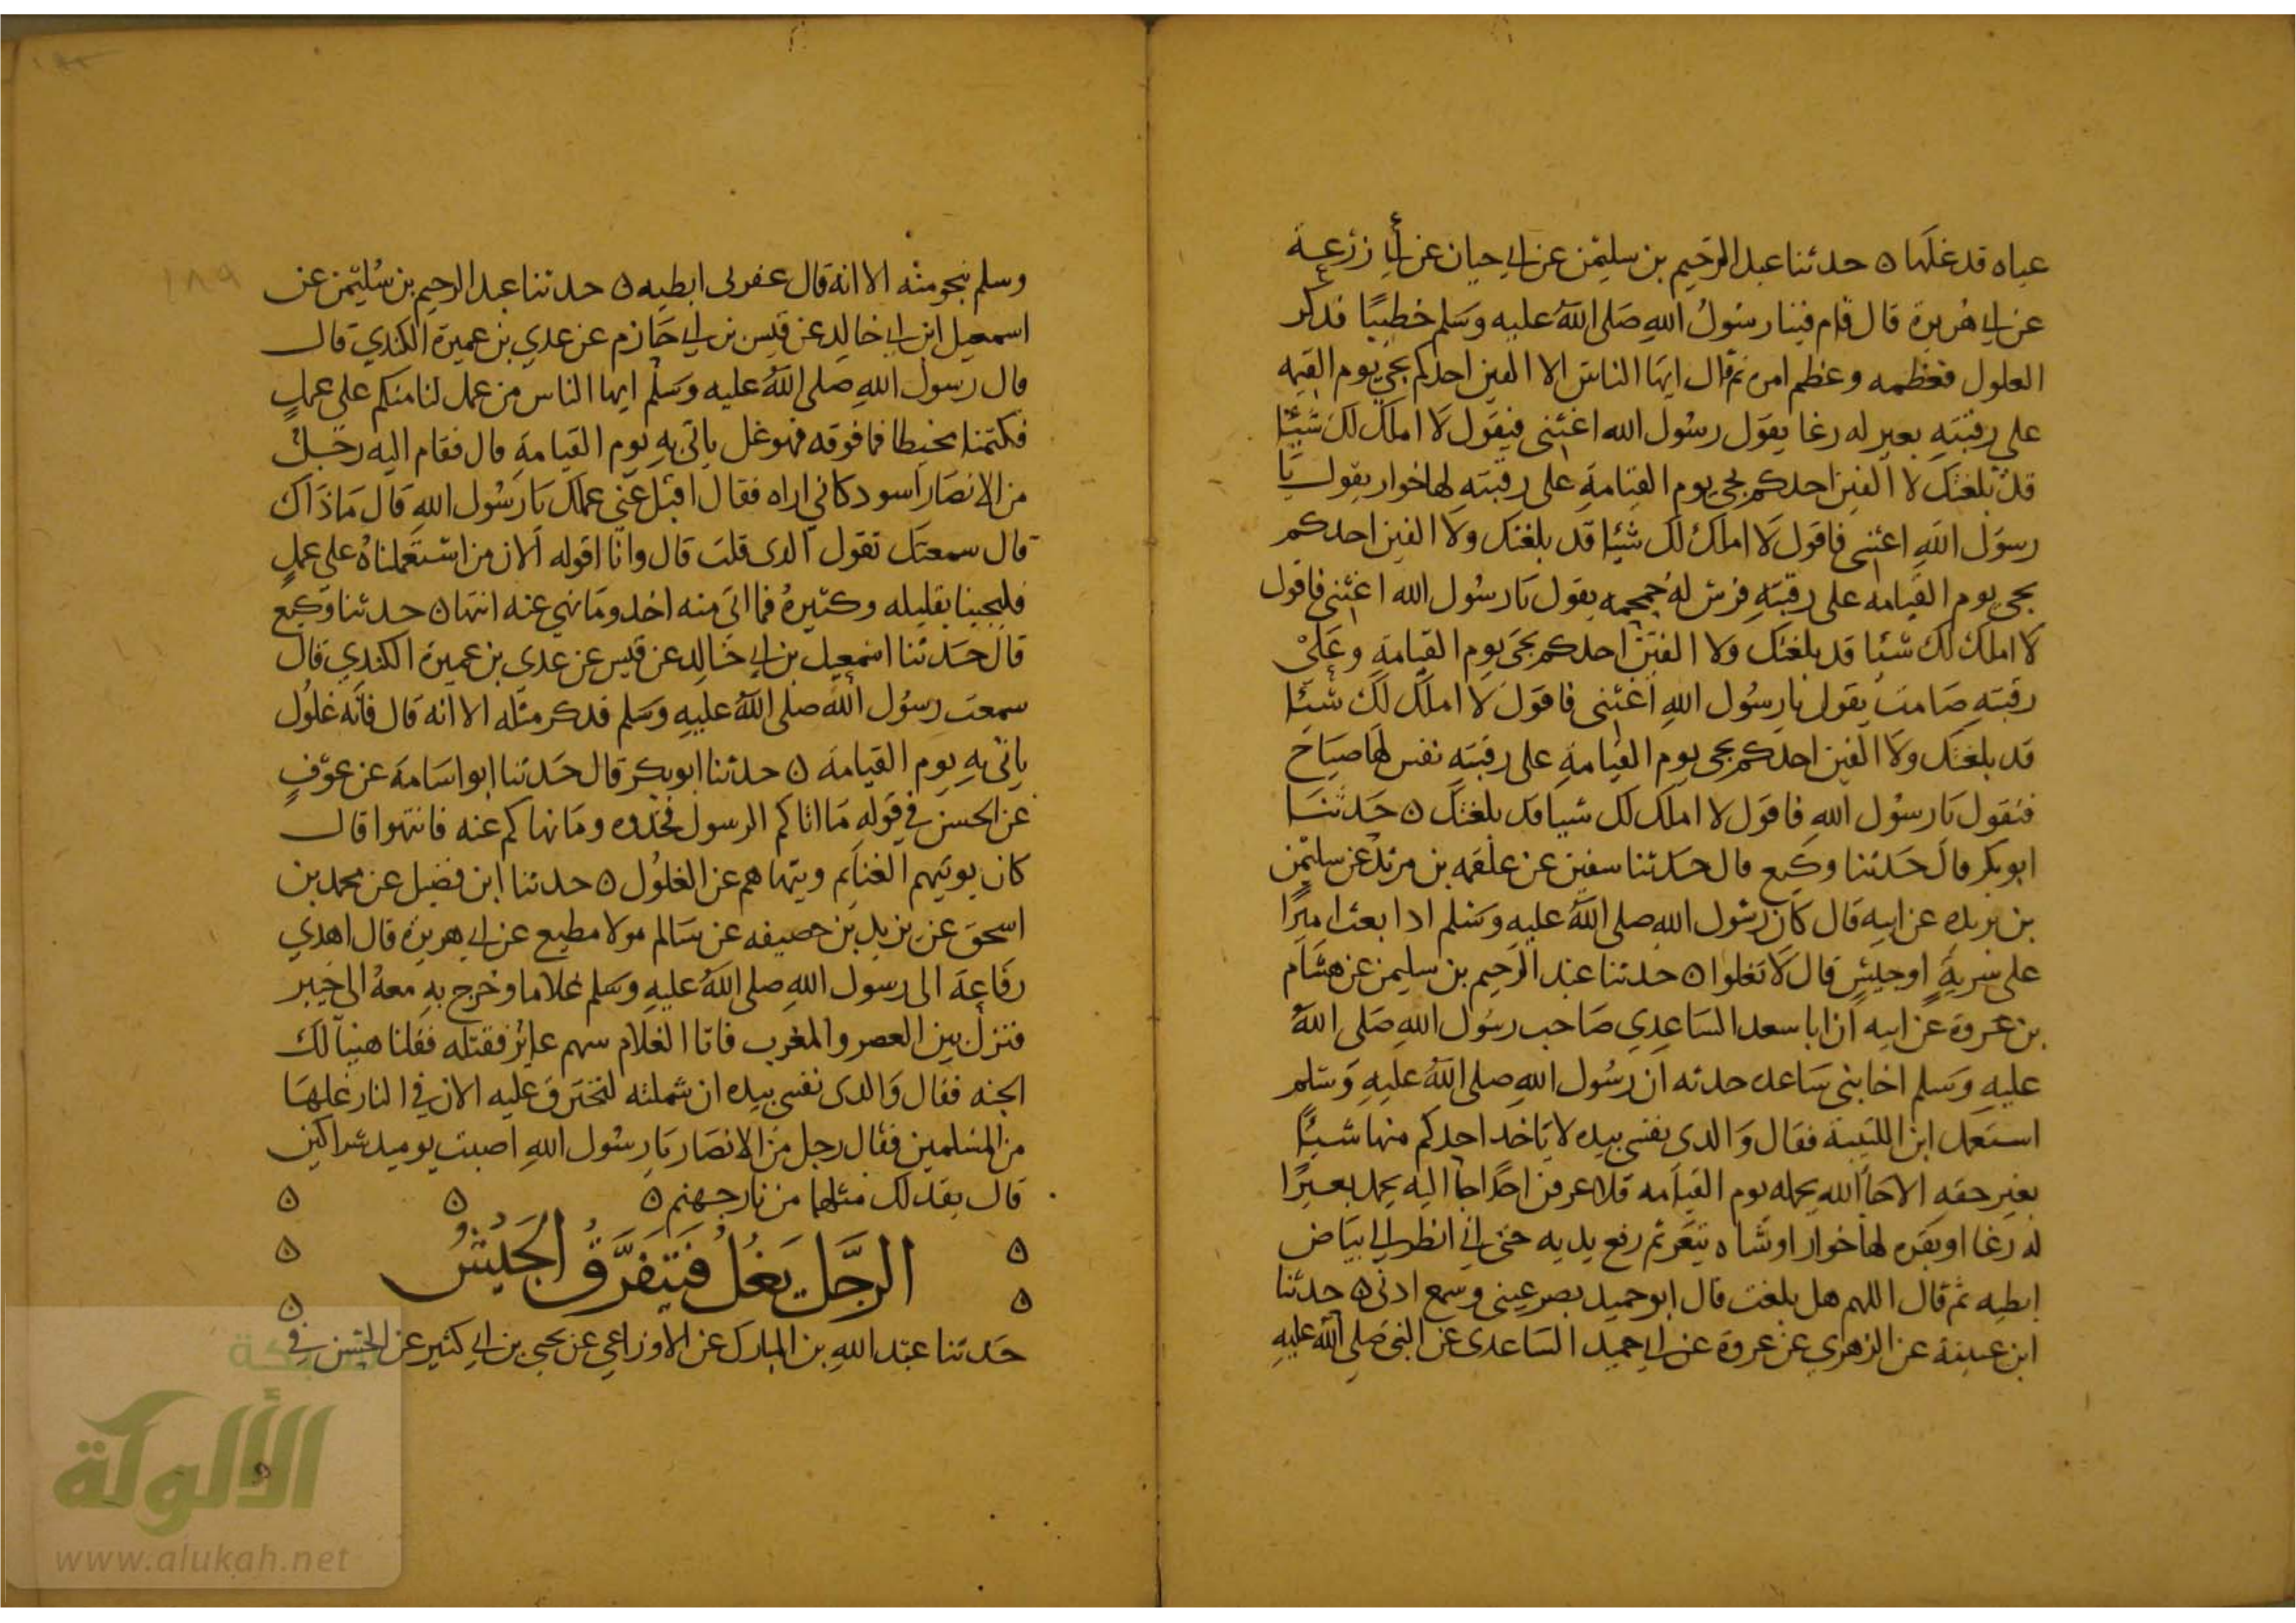 عباه قد غلها ه حدثنا عبد الرحيم بن سليمن عن ابي حيان عن أبي زرعة
عن ابي هريرة قال قام فينا رسول الله صلى الله عليه وسلم خطيبا فذكر
الغلول فعظمه وعظم امره ثم قال ايها الناس الا الفين احدكم يجي يوم القيمه
على رقبته بعير له رغا يقول رسول الله اغثني فيقول لا املك لك شيئا
قد بلغتك لا الفين احدكم يجي يوم القيامة على رقبته لها خوار يقول يا
رسول الله اغثني فاقول لا املك لك شيئا قد بلغتك ولا الفين احدكم
يجي يوم القيامه على رقبته فرس له حمحمه يقول يا رسول الله اغثني فاقول
لا املك لك شئا قد بلغتك ولا الفين احدكم يجي يوم القيامة وعلى
رقبته صامت يقول يا رسول الله اغثني فاقول لا املك لك شيئا
قد بلغتك ولا الفين احدكم يجي يوم القيامة على رقبته نفس لها صياح
فيقول يا رسول الله فاقول لا املك لك شيا قد بلغتك ه حدثنا
ابو بكر قال حدثنا وكيع قال حدثنا سفين عن علقمه بن مرثد عن سليمن
بن بريده عن ابيه قال كان رسول الله صلى الله عليه وسلم اذا بعث اميرا
على سرية او جيش قال لا تغلوا ه حدثنا عبد الرحيم بن سليمن عن هشام
بن عروة عن ابيه ان ابا سعد الساعدي صاحب رسول الله صلى الله
عليه وسلم اخا بني ساعده حدثه ان رسول الله صلى الله عليه وسلم
استعمل ابن اللتبية فقال والذى نفسي بيده لا ياخذ احدكم منها شيئا
بغير حقه الا جا الله يحمله يوم القيامه فلا عرفن احدا جا اليه يحمل بعيرا
له رغا او بقره لها خوار او شاه تيعر ثم رفع يديه حتى اني انظر الي بياض
ابطيه ثم قال اللهم هل بلغت قال ابو حميد بصر عيني وسمع اذني ه حدثنا
ابن عيينة عن الزهري عن عروة عن ابي حميد الساعدى عن النبي صلى الله عليه
وسلم بنحو مثه الا انه قال عفرلى ابطيه ه حدثنا عبد الرحيم بن سليمن عن
اسمعيل ابن ابي خالد عن قيس بن ابي حازم عن عدي بن عميرة الكندي قال
قال رسول الله صلى الله عليه وسلم ايها الناس من عمل لنا منكم علي عمل
فكتمنا مخيطا فما فوقه فهو غل ياتي به يوم القيامة قال فقام اليه رجل
من الانصار اسود كاني اراه فقال اقبل عني عملك يا رسول الله قال ماذاك
قال سمعتك تقول الذى قلت قال وانا اقوله الان من استعملناه على عمل
فليجينا بقليله وكثيره فما اتى منه اخذ وما نهي عنه انتها ه حدثنا وكيع
قال حدثنا اسمعيل بن ابي خالد عن قيس عن عدي بن عميرة الكندي قال
سمعت رسول الله صلى الله عليه وسلم فذكر مثله الا انه قال فانه غلول
ياتي به يوم القيامة ه حدثنا ابو بكر قال حدثنا ابو اسامة عن عوف
عن الحسن في قوله ما اتاكم الرسول فخذوه وما نهاكم عنه فانتهوا قال
كان يوتيهم الغنايم وينهاهم عن الغلول ه حدثنا ابن فضيل عن محمد بن
اسحق عن يزيد بن خصيفه عن سالم مولا مطيع عن ابي هريرة قال اهدي
رفاعة الى رسول الله صلى الله عليه وسلم غلاما وخرج به معه الي خيبر
فنزل بين العصر والمغرب فاتا الغلام سهم عاير فقتله فقلنا هنيا لك
الجنه فقال والذى نفسي بيده ان شملته لتحترق عليه الان في النار غلها
من المسلمين فقال رجل من الانصار يا رسول الله اصبت يوميد شراكين
قال يقد لك مثلهما من نار جهنم ه ه ه
الرجل يغل فتيفرق الجيش
حدثنا عبد الله بن المبارك عن الاوزاعي عن يحيى بن ابي كثير عن الحسن في
١٨٩
شبكة
الألوكة
www.alukah.net